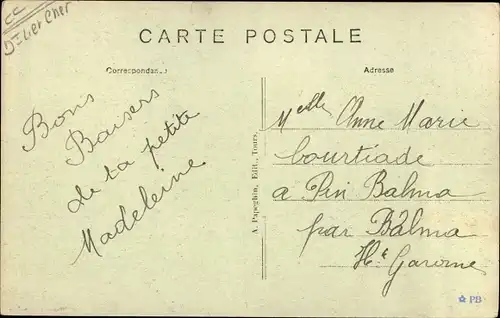 CC
Dt Loir Cher
CARTE POSTALE
Correspondance
Adresse
Bons
Baisers
de ta petite
Madeleine
A. Papeghin, Edit., Tours.
Melle Anne Marie
Courtiade
a Pin Balma
par Balma
Hte Garonne
PB